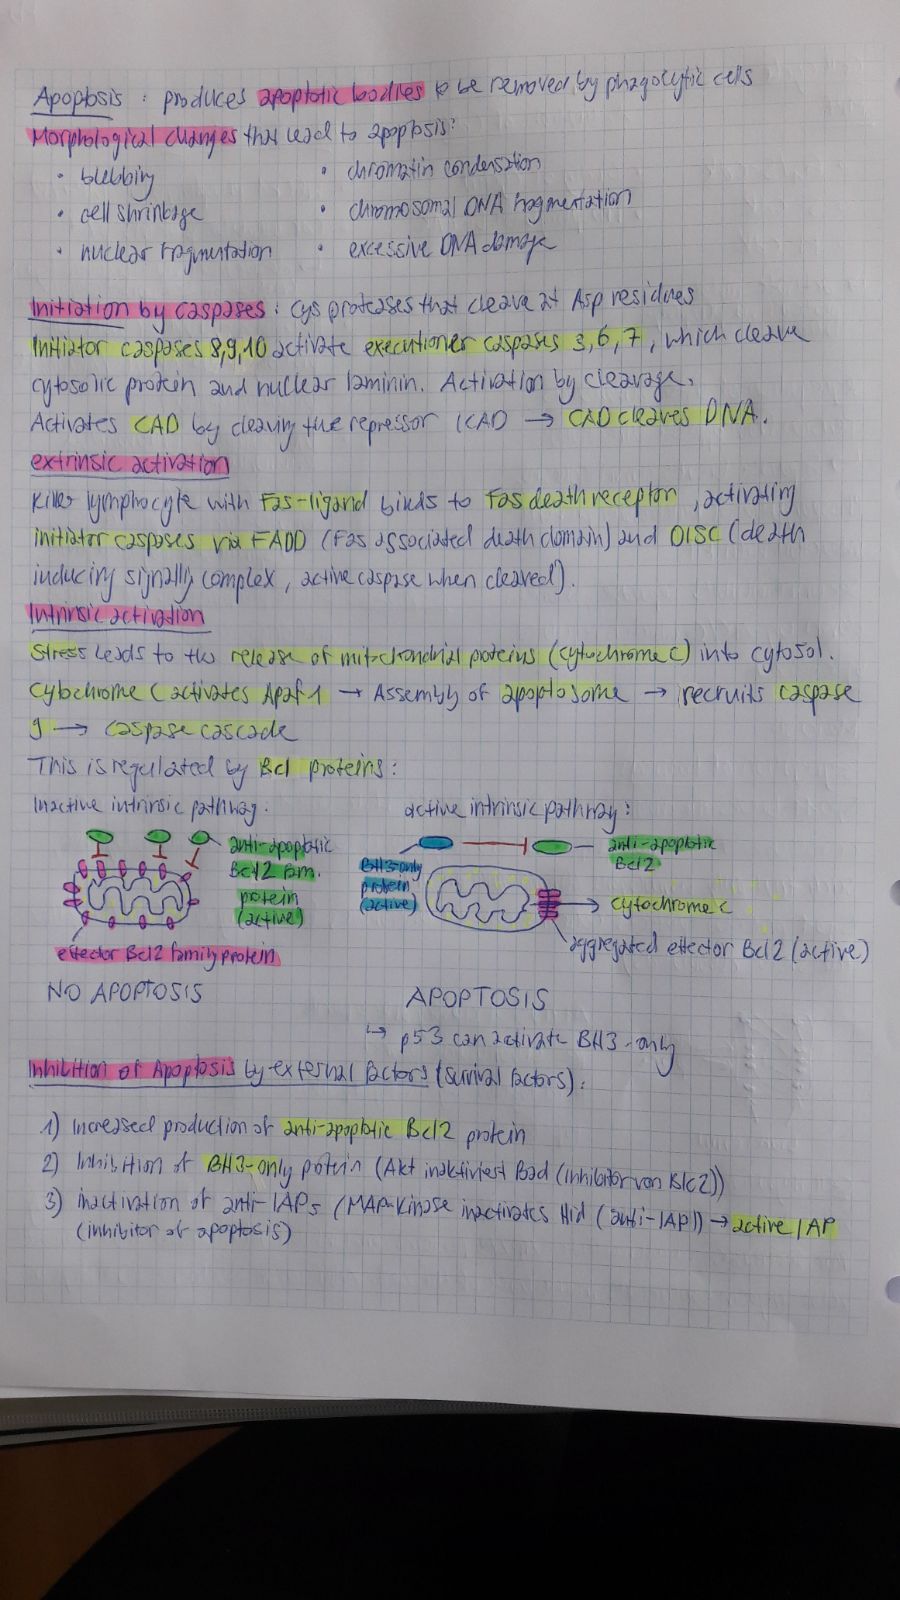 Apoptosis : produces apoptotic bodies to be removed by phagocytic cells
Morphological changes that lead to apoptosis:
• blebbing
• cell shrinkage
• nuclear fragmentation
• chromatin condensation
• chromosomal DNA fragmentation
• excessive DNA damage
Initiation by caspases : Cys proteases that cleave at Asp residues
Initiator caspases 8,9,10 activate executioner caspases 3,6,7, which cleave
cytosolic protein and nuclear laminin. Activation by cleavage.
Activates CAD by cleaving the repressor ICAD → CAD cleaves DNA.
extrinsic activation
Killer lymphocyte with Fas-ligand binds to Fas death receptor, activating
initiator caspases via FADD (Fas associated death domain) and DISC (death
inducing signally complex, active caspase when cleaved).
Intrinsic activation
Stress leads to the release of mitochondrial proteins (cytochrome c) into cytosol.
Cytochrome C activates Apaf1 → Assembly of apoptosome → recruits caspase
9 → caspase cascade
This is regulated by Bcl proteins:
Inactive intrinsic pathway:
anti-apoptotic
Bcl2 fam.
protein
(active)
effector Bcl2 family protein
NO APOPTOSIS
active intrinsic pathway:
BH3-only
protein
(active)
anti-apoptotic
Bcl2
cytochrome c
aggregated effector Bcl2 (active)
APOPTOSIS
↳ p53 can activate BH3-only
Inhibition of Apoptosis by external factors (survival factors):
1) Increased production of anti-apoptotic Bcl2 protein
2) Inhibition of BH3-only protein (Akt inaktiviert Bad (inhibitor von Blc2))
3) inactivation of anti-IAPs (MAP-Kinase inactivates Hid (anti-IAP)) → active IAP
(inhibitor of apoptosis)